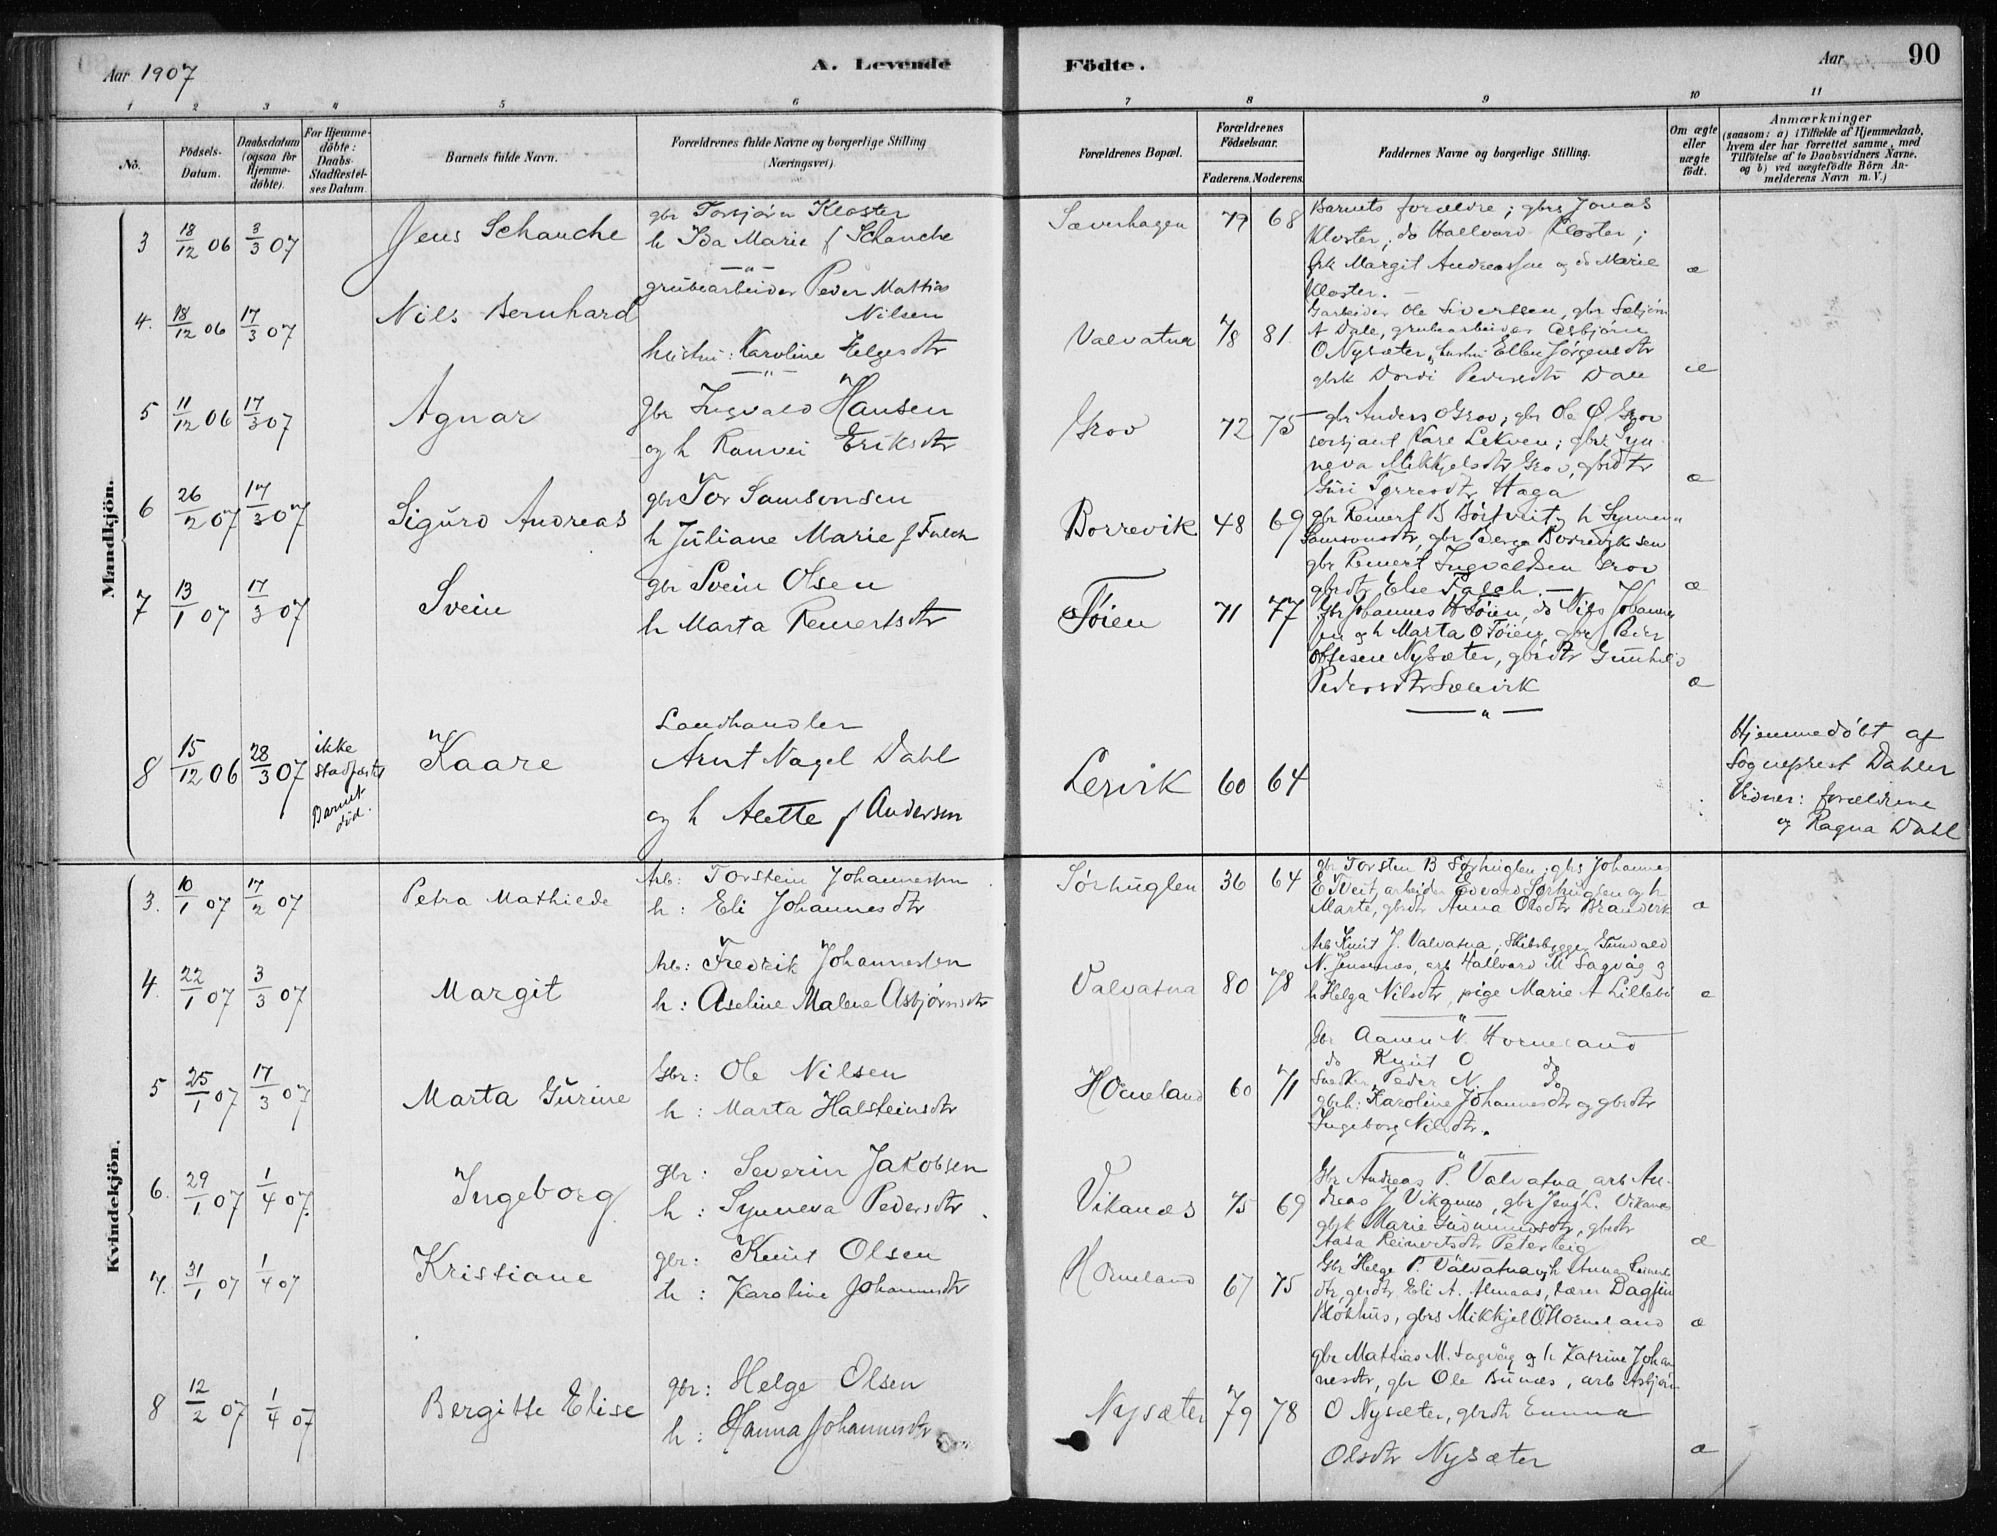 Aar 1907
A. Levende
Födte.
Aar
90
1 2 3 4 5 6 7 8 9 10 11
No.
Födsels-
Datum.
Daabsdatum
(ogsaa for
Hjemme-
döbte).
For Hjemme-
döbte:
Daabs-
Stadfæstel-
ses Datum.
Barnets fulde Navn.
Forældrenes fulde Navne og borgerlige Stilling
(Næringsvei).
Forældrenes Bopæl.
Forældrenes
Födselsaar.
Faderens. Moderens.
Faddernes Navne og borgerlige Stilling.
Om ægte
eller
uægte
födt.
Anmærkninger
(saasom: a) i Tilfælde af Hjemmedaab,
hvem der har forrettet samme, med
Tilföielse af to Daabsvidners Navne,
og b) ved uægtefödte Börn An-
melderens Navn m. V.)
Mandkjön.
3 18/12 06 3/3 07 Jens Schanche
gbr Torbjørn Kloster
h Ida Marie f Schanche
Sævenhagen 79 68
Barnets forældre; gbrs Jonas
Kloster; do Hallvard Kloster;
frk Margit Andreassen og do Marie
Kloster. æ
4. 18/12 06 17/3 07 Nils Bernhard
grubearbeider Peder Mattias
Nilsen
hustru: Karoline Helgesdtr
Valvatna 78 81.
Garbeider Ole Sivertsen, gbr Sæbjørn
A Dale, grubearbeider Asbjørn
O Nysæter, hustru Ellen Jørgensdtr
gbrk Dordi Pedersdtr Dale æ
5 11/12 06 17/3 07 Agnar
gbr Ingvald Hansen
og h Ranvei Eriksdtr
Grov 72 75
gbr Anders O Grov; gbr Ole Ø Grov
sersjant Kare Lekven; gbrk Syn-
neva Mikkjelsdtr Grov, gbrdtr
Guri Torresdtr Haga æ
6 26/2 07 17/3 07 Sigurd Andreas
gbr Tor Samsonsen
h Juliane Marie f Falch
Borrevik 48 69
gbr Reinert B Børtveit, h Synneva
Samsonsdtr, gbr Børge Borreviksen
gbr Reinert Ingvaldsen Grov
gbrdtr Else Falch. æ
7 13/1 07 17/3 07 Svein
gbr Svein Olsen
h Marta Reinertsdtr
Tøien 71 77
Gbr Johannes B Tøien, do Nils Johannes
sen og h Marta O Tøien, gbr Peder
Olsen Nysæter, gbrdtr Gunhild
Pedersdtr Sævik æ
8 15/12 06 28/3 07
ikke
stadfæstet
Barnet
död.
Kaare
Landhandler
Arnt Nagel Dahl
og h Alette f Andersen
Lervik 60 64
Hjemmedøbt af
Sogneprest Dahler
Vidner: forældrene
og Ragna Dahl
Kvindekjön.
3. 10/1 07 17/2 07 Petra Mathilde
Arb: Torstein Johannessen
h: Eli Johannesdtr
Sørhuglen 36 64
gbr Torsten B Sørhuglen, gbrs Johannes
E Tveit, arbeider Edvard Sørhuglen og h
Marte, gbrdtr Anna Olsdtr Brandvik æ
4. 22/1 07 3/3 07 Margit
Arb: Fredrik Johannessen
h: Aseline Malene Asbjørnsdtr
Valvatna 80 78
Arb Knut J. Valvatna, Skibsbygger Gunvald
N. Jensenæs, arb Hallvard M Sagvåg og
h Helga Nilsdtr, pige Marie A Lillebø æ
5 25/1 07 17/3 07 Marta Gurine
Gbr: Ole Nilsen
h: Marta Halsteinsdtr
Horneland 60 71
Gbr Aanen N. Horneland
do Knut O do
Snedker Peder N. do
gbrh: Karoline Johannesdtr og gbrdtr
Ingeborg Nilsdtr.
6. 29/1 07 1/4 07. Ingeborg
gbr: Severin Jakobsen
h: Synneva Pedersdtr.
Vikanæs 75 69
Gbr Andreas P. Valvatna arb An-
dreas J Vikanæs, gbr Jens L. Vikanæs
gbrk Marie Gudmundsdtr, gbrdtr
Aasa Reinertsdtr Peterteig æ
7. 31/1 07 1/4 07 Kristiane
gbr: Knut Olsen
h: Karoline Johannesdtr
Horneland 67 75
Gbr Helge P. Valvatna og h Anna Reinerts
dtr, gbrdtr Eli A. Almaas, lærer Dagfin
Bløkhus, gbrs Mikkjel O Horneland æ
8 12/2 07 1/4 07 Bergitte Elise
gbr: Helge Olsen
h: Hanna Johannesdtr
Nysæter 79 78
gbr Mattias M. Sagvåg og h Katrine Johan
nesdtr, gbr Ole Bunæs, arb Asbjørn
O Nysæter, gbrdtr Emma
Olsdtr Nysæter æ